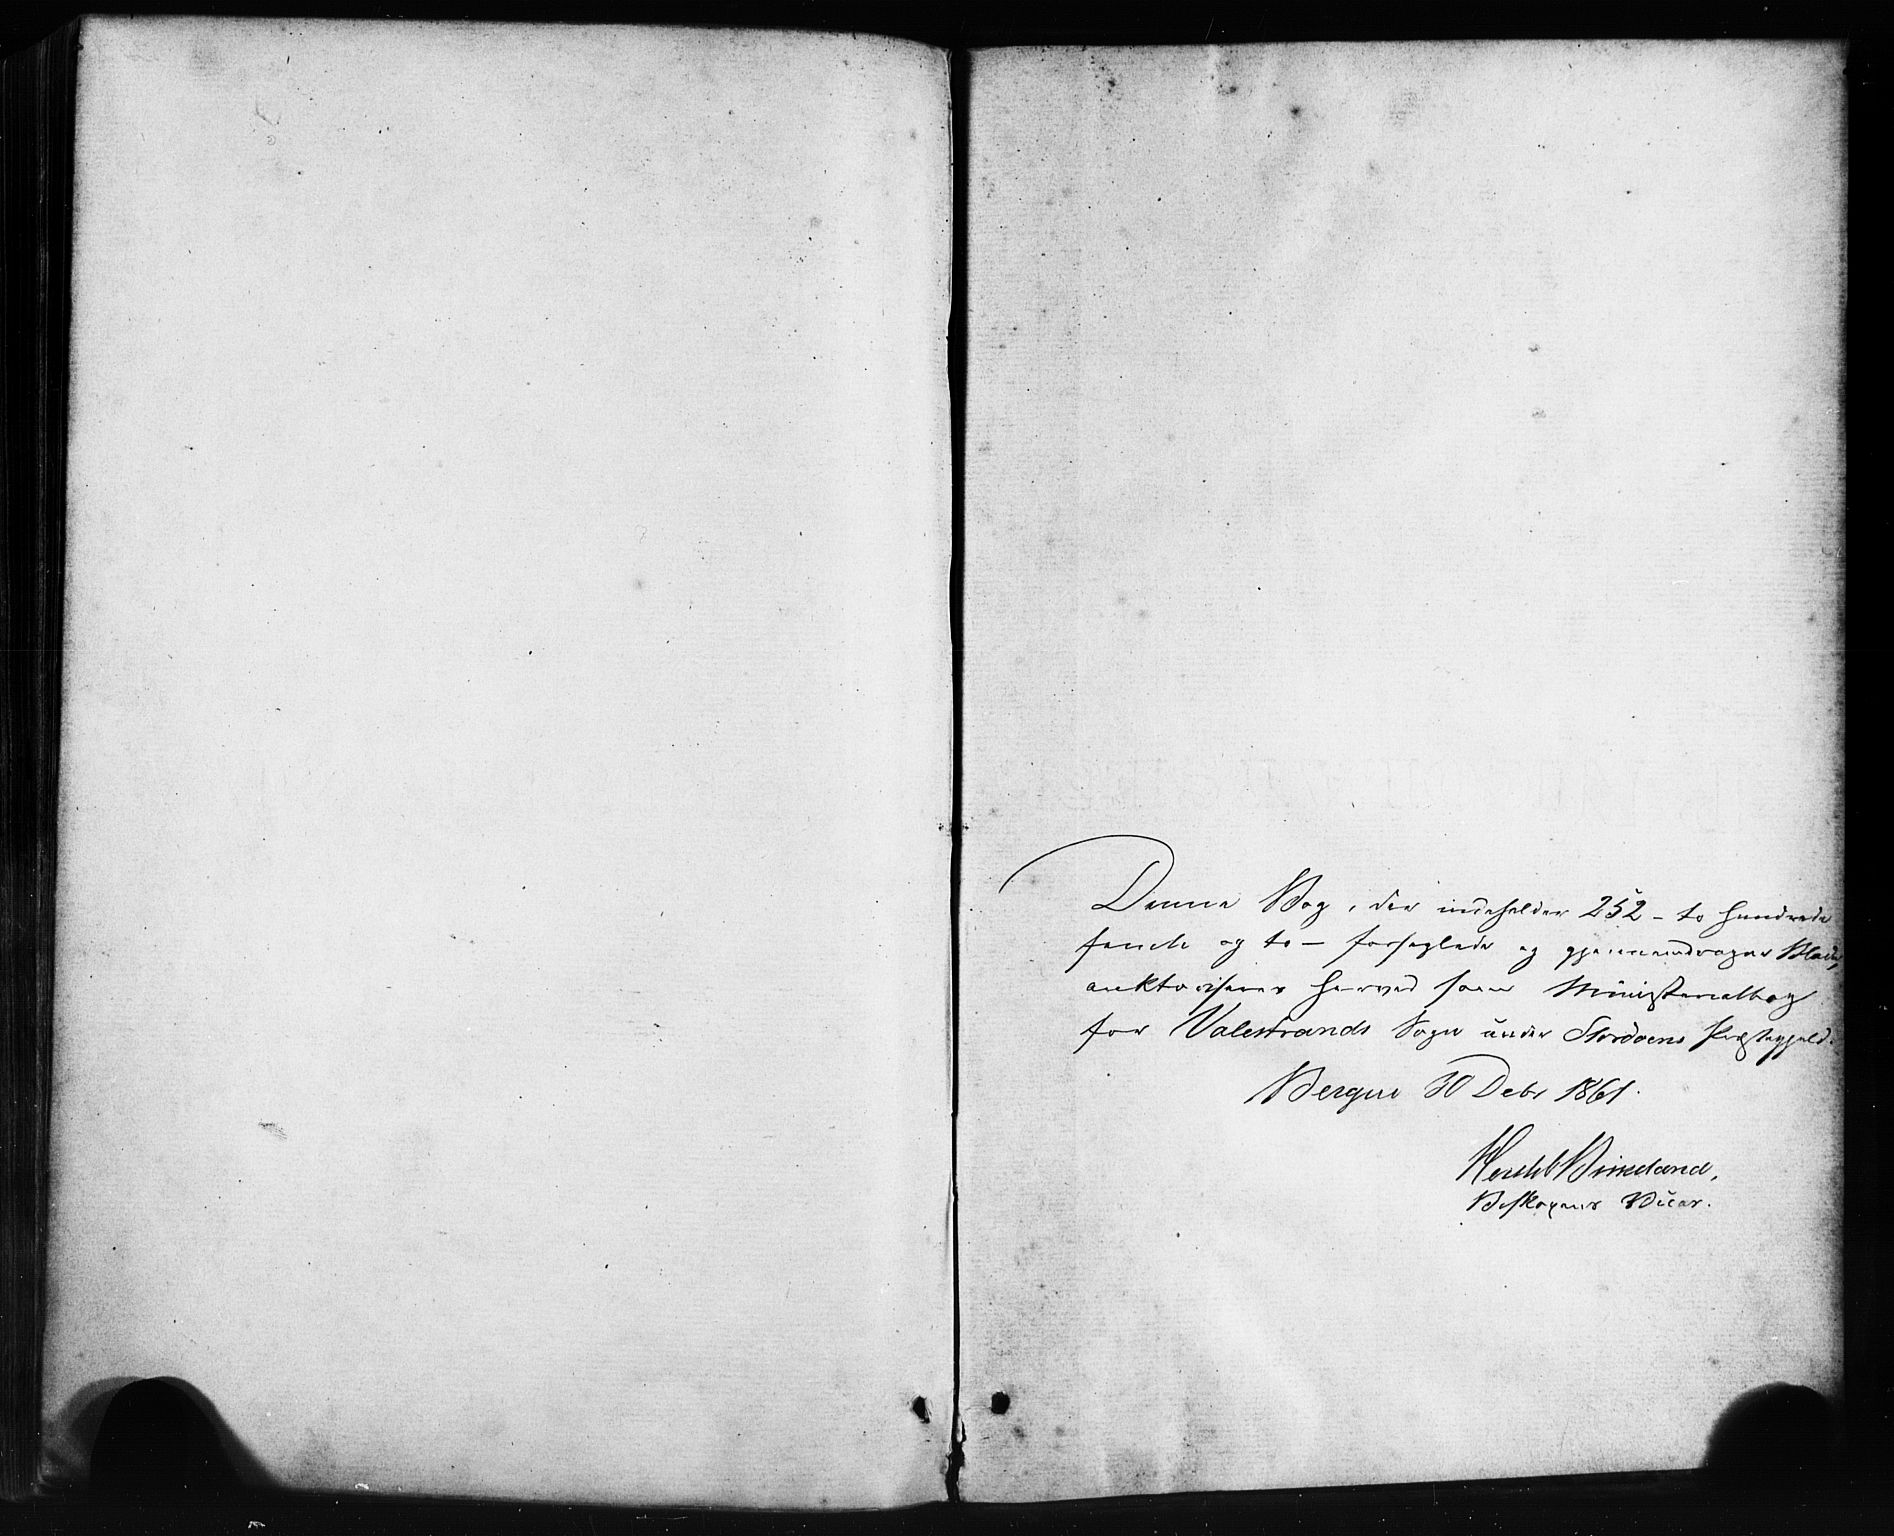 Denne Bog, der indeholder 252 – to hundrede
femti og to – forseglede og gjennemdragne Blade,
auktoriseres herved som Ministerialbog
for Valestrands Sogn under Stordøens Præstegjeld.
Bergen 30 Decbr 1861.
Birkeland,
Biskopens Vicar.